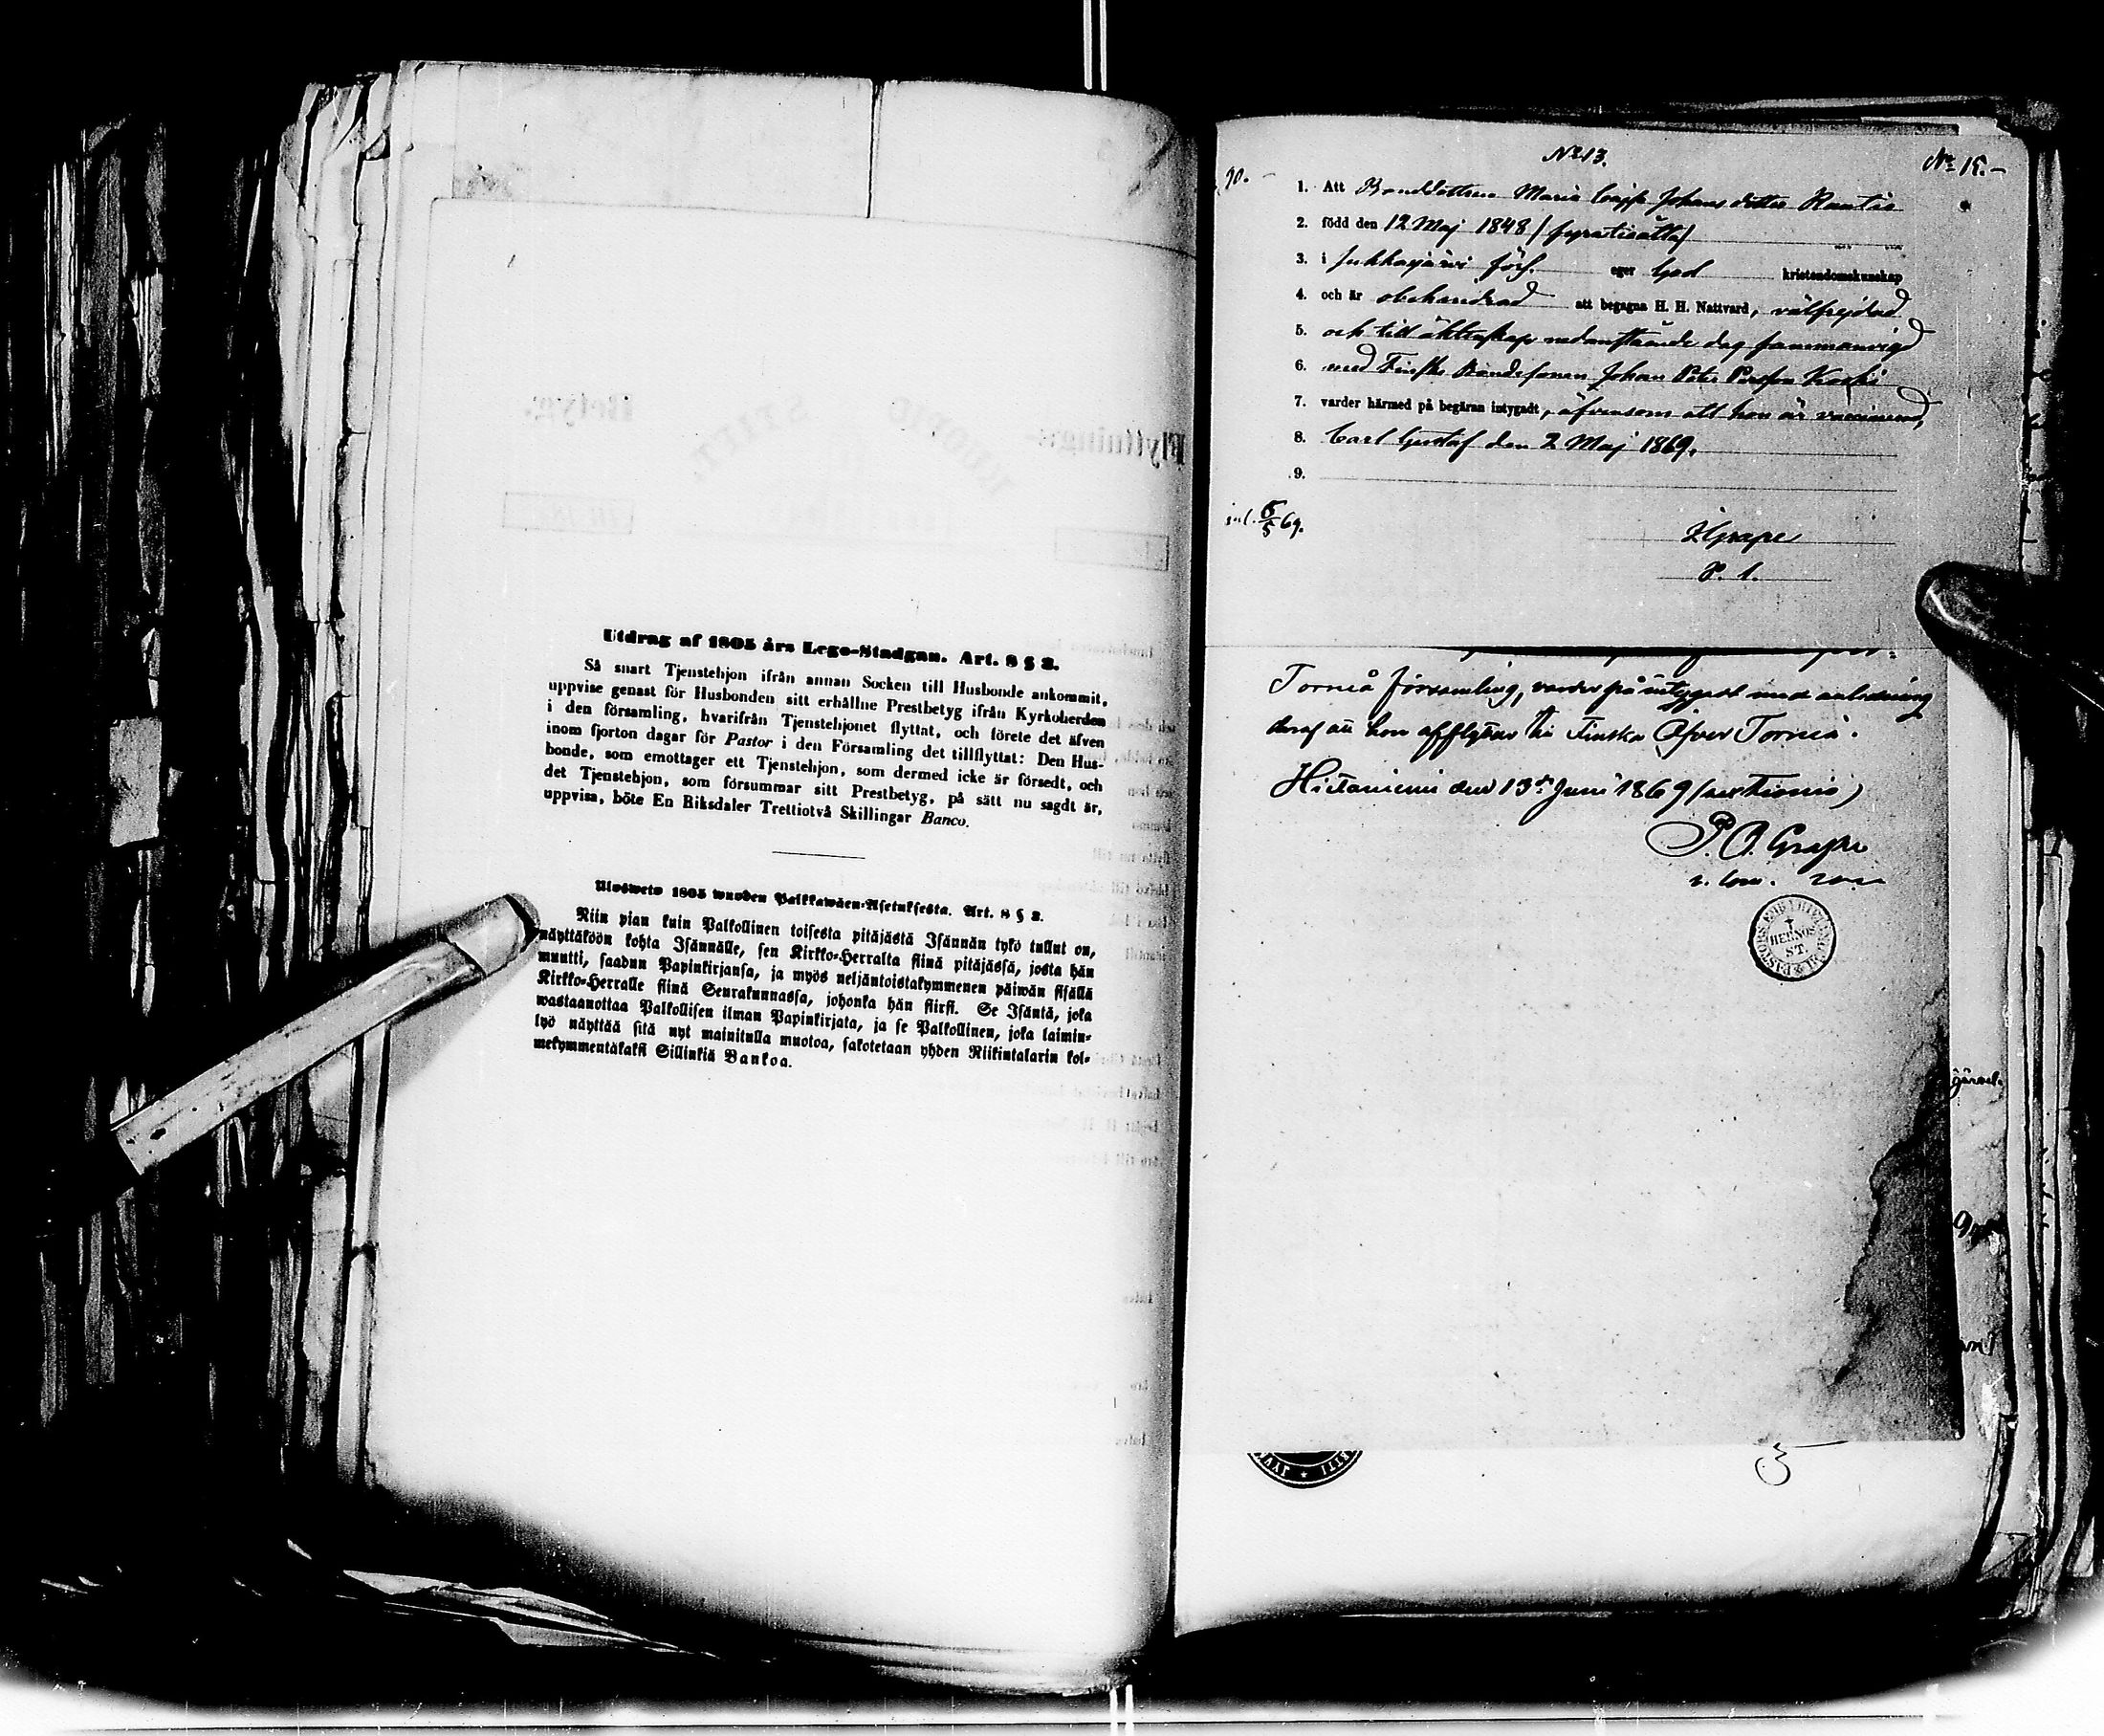 Utdrag af 1805 års Lego-Stadgan. Art. 8 § 3.
Så snart Tjenstehjon ifrån annan Socken till Husbonde ankommit,
uppvise genast för Husbonden sitt erhållne Prestbetyg ifrån Kyrkoherden
i den församling, hvarifrån Tjenstehjonet flyttat, och förete det äfven
inom fjorton dagar för Pastor i den Församling det tillflyttat: Den Hus-
bonde, som emottager ett Tjenstehjon, som dermed icke är försedt, och
det Tjenstehjon, som försummar sitt Prestbetyg, på sätt nu sagdt är,
uppvisa, böte En Riksdaler Trettiotvå Skillingar Banco.
Ulosweto 1805 wuoden Palkkawäen-Asetuksesta. Art. 8 § 3.
Niin pian kuin Palkollinen toisesta pitäjästä Isännän tykö tullut on,
näyttäköön kohta Isännälle, sen Kirkko-Herralta siinä pitäjässä, josta hän
muutti, saadun Papinkirjansa, ja myös neljäntoistakymmenen päiwän sisällä
Kirkko-Herralle siinä Seurakunnassa, johonka hän siirsi. Se Isäntä, joka
wastaanottaa Palkollisen ilman Papinkirjata, ja se Palkollinen, joka laimin-
lyö näyttää sitä nyt mainitulla muotoa, sakotetaan yhden Riikintalarin kol-
mekymmentäkaksi Sillinkiä Bankoa.
No 13.
No 15.-
90.-
1. Att Bonddottren Maria Cajsa Johansdotter Rautio
2. född den 12 Maj 1848 / fyratioåtta/
3. i Jukkasjärvi förs. eger God kristendomskunskap
4. och är obehindrad att begagna H. H. Nattvard, välfrejdad
5. och till äktenskap nedanstående dag sammanvigd
6. med Finske Bondesonen Johan Peter Persson Koski
7. varder härmed på begäran intygadt, äfvensom att hon är vaccinerad,
8. Carl Gustaf den 2 Maj 1869.
9.
inl. 5/5 69.
Grape
P. l.
Torneå församling, varder på intygadt med anledning
deraf att hon afflyttar till Finska Öfver Torneå.
Hietaniemi den 13de Juni 1869 (sextionio)
P. O. Grape
HERNÖS
ST.